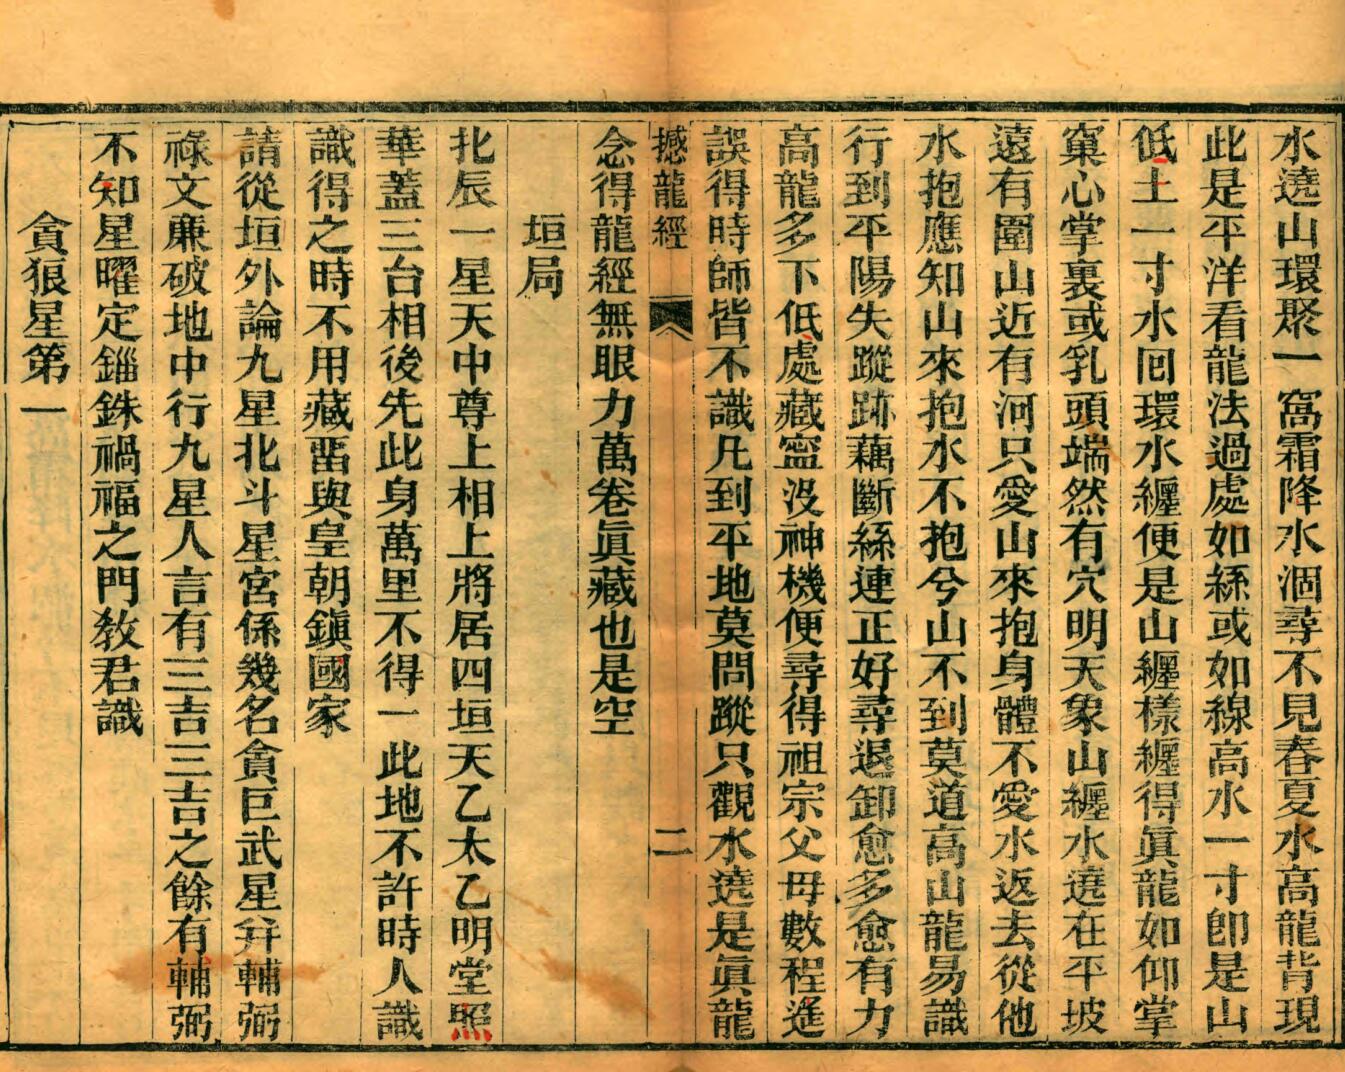 水遶山環聚一窩霜降水涸尋不見春夏水高龍背現
此是平洋看龍法過處如絲或如線高水一寸卽是山
低土一寸水囘環水纏便是山纏樣纏得眞龍如仰掌
窠心掌裏或乳頭端然有穴明天象山纏水遶在平坡
遠有圍山近有河只愛山來抱身體不愛水返去從他
水抱應知山來抱水不抱兮山不到莫道高山龍易識
行到平陽失蹤跡藕斷絲連正好尋退卸愈多愈有力
高龍多下低處藏寍沒神機便尋得祖宗父母數程遙
誤得時師皆不識凡到平地莫問蹤只觀水遶是眞龍
撼龍經 二
念得龍經無眼力萬卷眞藏也是空
垣局
北辰一星天中尊上相上將居四垣天乙太乙明堂照
華蓋三台相後先此身萬里不得一此地不許時人識
識得之時不用藏畱與皇朝鎭國家
請從垣外論九星北斗星宮係幾名貪巨武星幷輔弼
祿文廉破地中行九星人言有三吉三吉之餘有輔弼
不知星曜定錙銖禍福之門敎君識
貪狼星第一